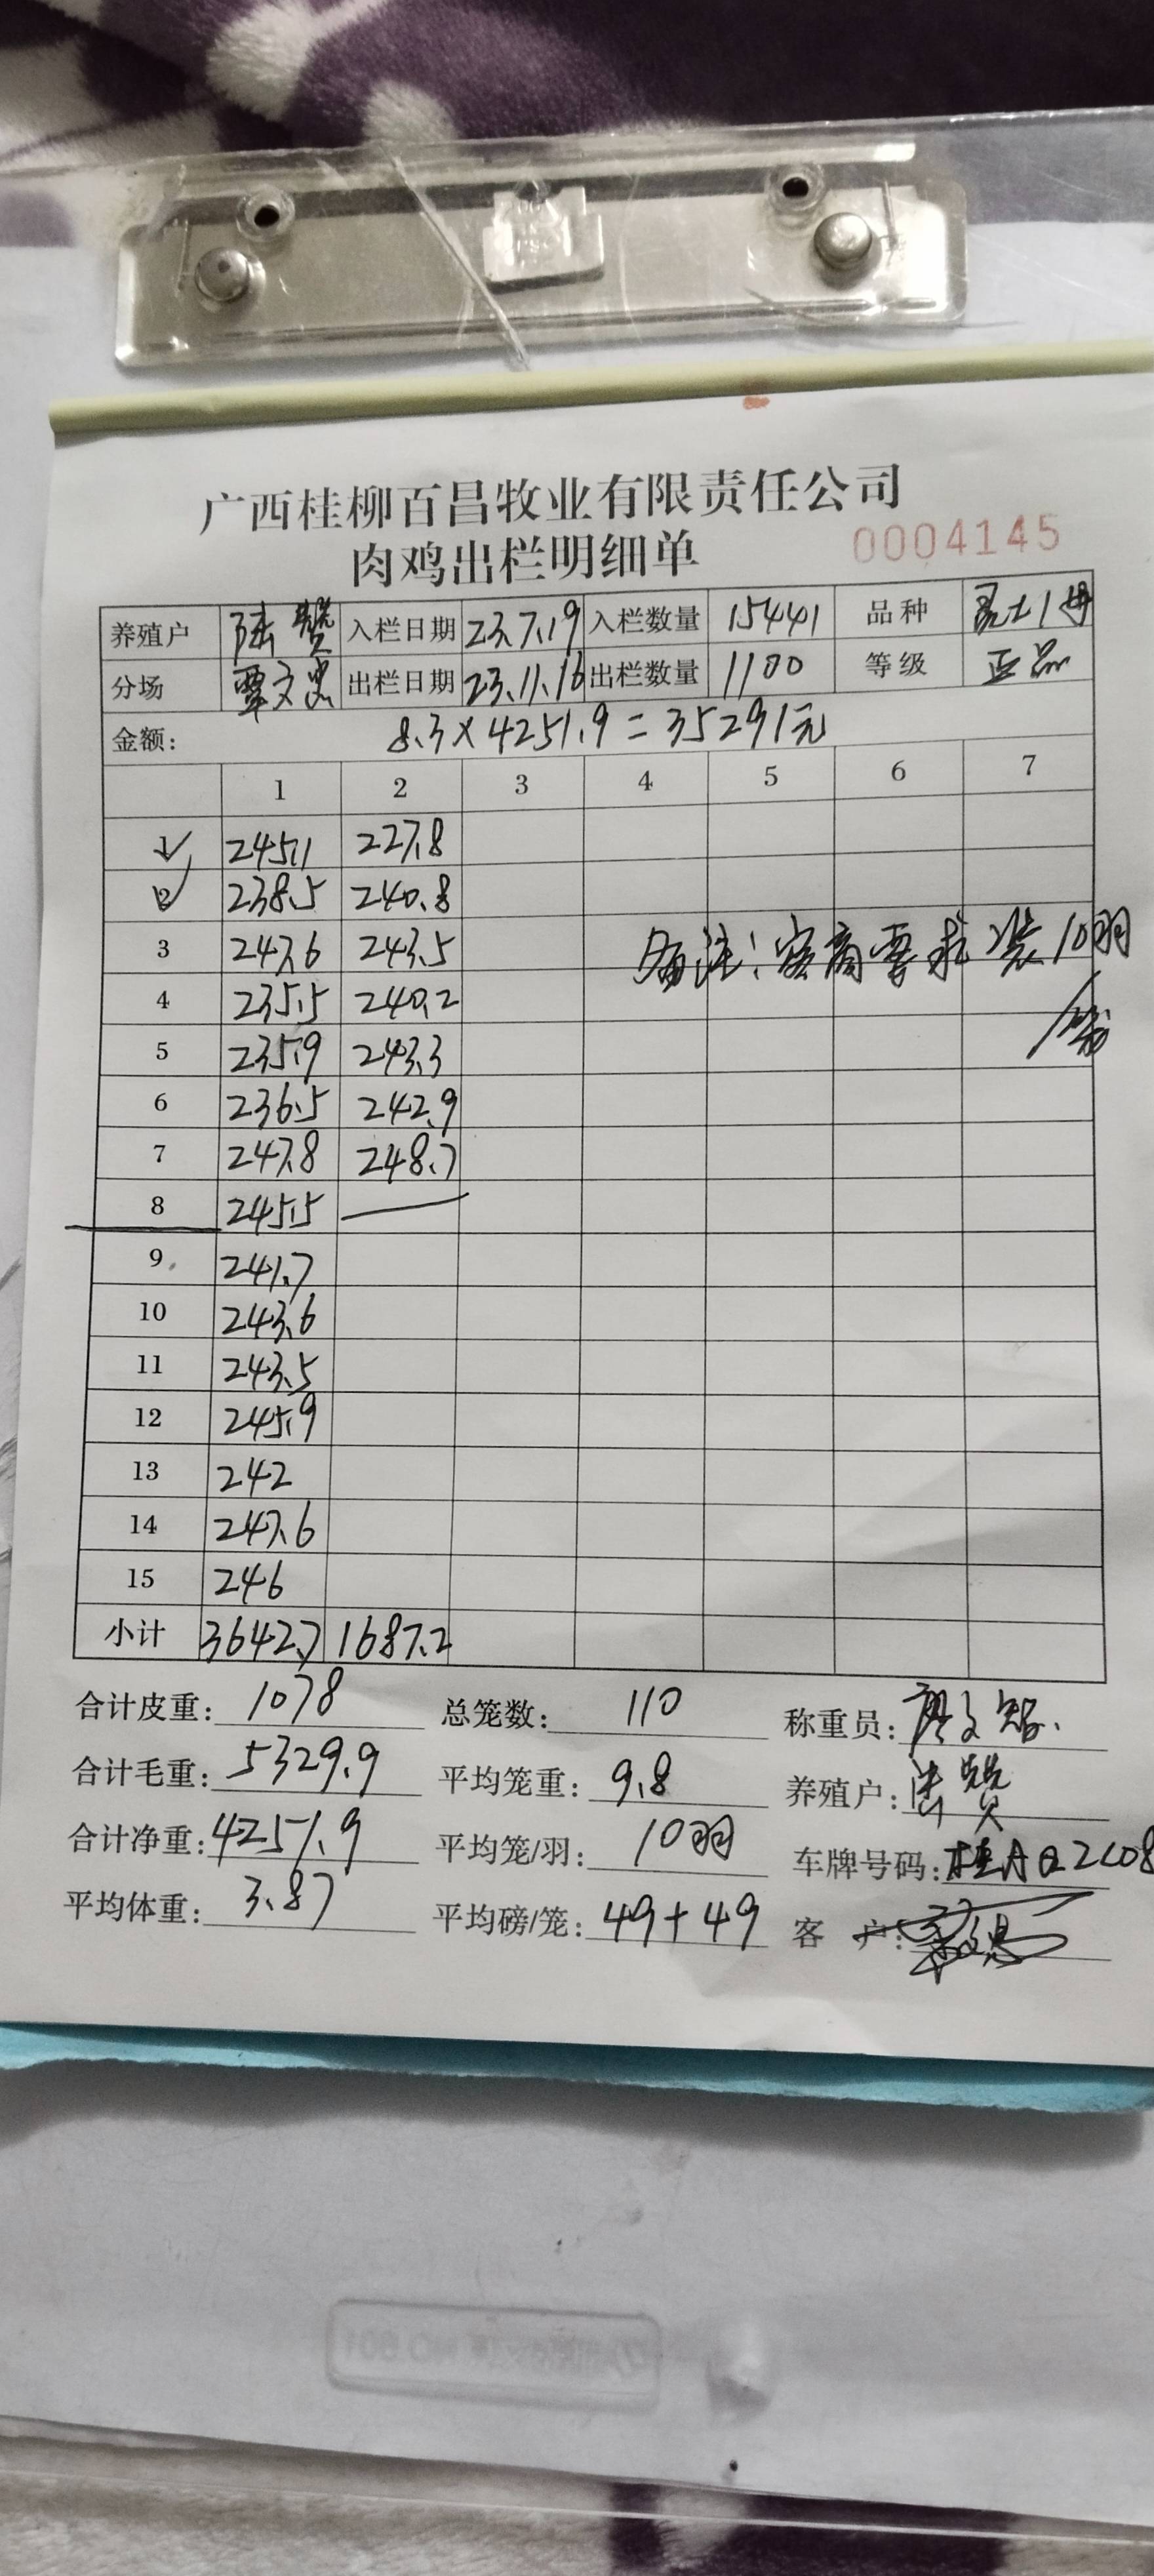 广西桂柳百昌牧业有限责任公司
肉鸡出栏明细单 0004145
养殖户 陆赞 入栏日期 23.7.19 入栏数量 15441 品种
分场 覃文忠 出栏日期 23.11.16 出栏数量 1100 等级 正品
金额: 8.3×4251.9=35291元
1 2 3 4 5 6 7
1 245.1 227.8
2 238.5 240.8
3 247.6 243.5
备注:客商要求装10羽
4 235.5 240.2
/笼
5 235.9 243.3
6 236.5 242.9
7 247.8 248.7
8 245.5
9 241.7
10 243.6
11 243.5
12 245.9
13 242
14 247.6
15 246
小计 3642.7 1687.2
合计皮重: 1078 总笼数: 110 称重员:
合计毛重: 5329.9 平均笼重: 9.8 养殖户: 陆赞
合计净重: 4251.9 平均笼/羽: 10羽 车牌号码: 桂A
平均体重: 3.87 平均磅/笼: 49+49 客户: